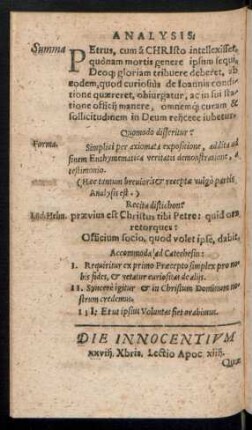 ANALYSIS:
Summa Petrus, cum à CHRIsto intellexisset,
quónam mortis genere ipsum sequi,
Deoq́; gloriam tribuere deberet, ab
eodem, quod curiosiùs de Ioannis condi-
tione quæreret, obiurgatur, ac in sui sta-
tione officij manere, omnemq́; curam &
sollicitudinem in Deum reijcere iubetur.
Quomodo disseritur?
Forma. Simplici per axiomata expositione, addita ad
finem Enthymematica veritatis demonstratione, à
testimonio.
(Hæc tantum brevioris & receptæ vulgò partis
Analysis est.)
Recita distichon?
prævius est Christus tibi Petre: quid ora
retorques?
Officium socio, quod volet ipse, dabit.
Accommoda ad Catechesin:
I. Requiritur ex primo Præcepto simplex pro no-
bis fides, & vetatur curiositas de alijs.
II. Syncerè igitur & in Christum Dominum no-
strum credimus.
III. Et ut ipsius Voluntas fiet orabimus.
DIE INNOCENTIVM
xxviij. Xbris. Lectio Apoc. xiiij.
Quæ